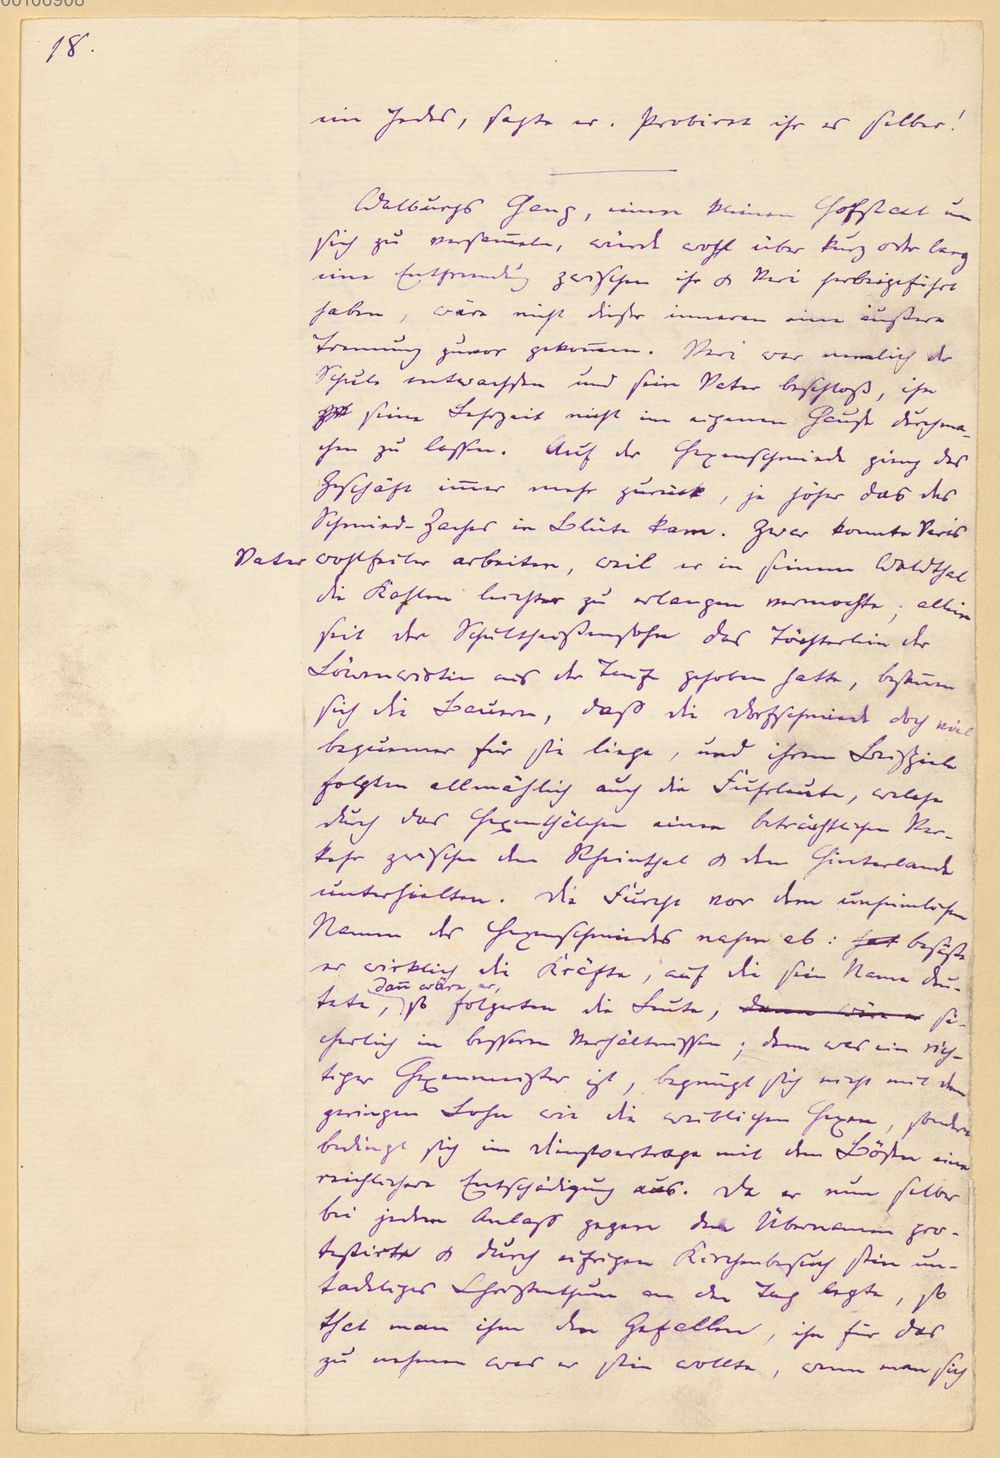 00106908
18.
ein Jedes, sagte er. Probiret ihr es selber!
Walburgs Hang, einen kleinen Hofstaat um
sich zu versam̄eln, würde wohl über kurz oder lang
eine Entfremdung zwischen ihr & Veri herbeigeführt
haben, wäre nicht dieser inneren eine äußere
Trennung zuvor gekom̄en. Veri war nemlich der
Schule entwachsen und sein Vater beschloß, ihn
seine Lehrzeit nicht im eigenen Hause durchma-
chen zu lassen. Auf der Hexenschmiede ging das
Geschäft im̄er mehr zurück, je höher das des
Schmied-Zachers in Blüte kam. Zwar konnte Veris
Vater wohlfeiler arbeiten, weil er in seinem Waldthal
die Kohlen leichter zu erlangen vermochte; allein
seit der Schultheißensohn das Töchterlein der
Löwenwirtin aus der Taufe gehoben hatte, besannen
sich die Bauern, daß die Dorfschmiede doch viel
bequemer für sie liege, und ihrem Beispiele
folgten allmählich auch die Fuhrleute, welche
durch das Hexenthälchen einen beträchtlichen Ver-
kehr zwischen dem Rheinthal & dem Hinterlande
unterhielten. Die Furcht vor dem unheimlichen
Namen des Hexenschmiedes nahm ab: hat besäße
er wirklich die Kräfte, auf die sein Name deu-
dan̄ wäre er,
tete, so folgerten die Leute, dann wäre er si-
cherlich in besseren Verhältnissen; denn was ein rich-
tiger Hexenmeister ist, begnügt sich nicht mit dem
geringen Lohn wie die weiblichen Hexen, sondern
bedingt sich im Dienstvertrage mit dem Bösen eine
reichlichere Entschädigung aus. Da er nun selber
bei jedem Anlaß gegen den Übernamen pro-
testirte & durch eifrigen Kirchenbesuch sein un-
tadeliges Christenthum an den Tag legte, so
that man ihm den Gefallen, ihn für das
zu nehmen was er sein wollte, wenn man sich